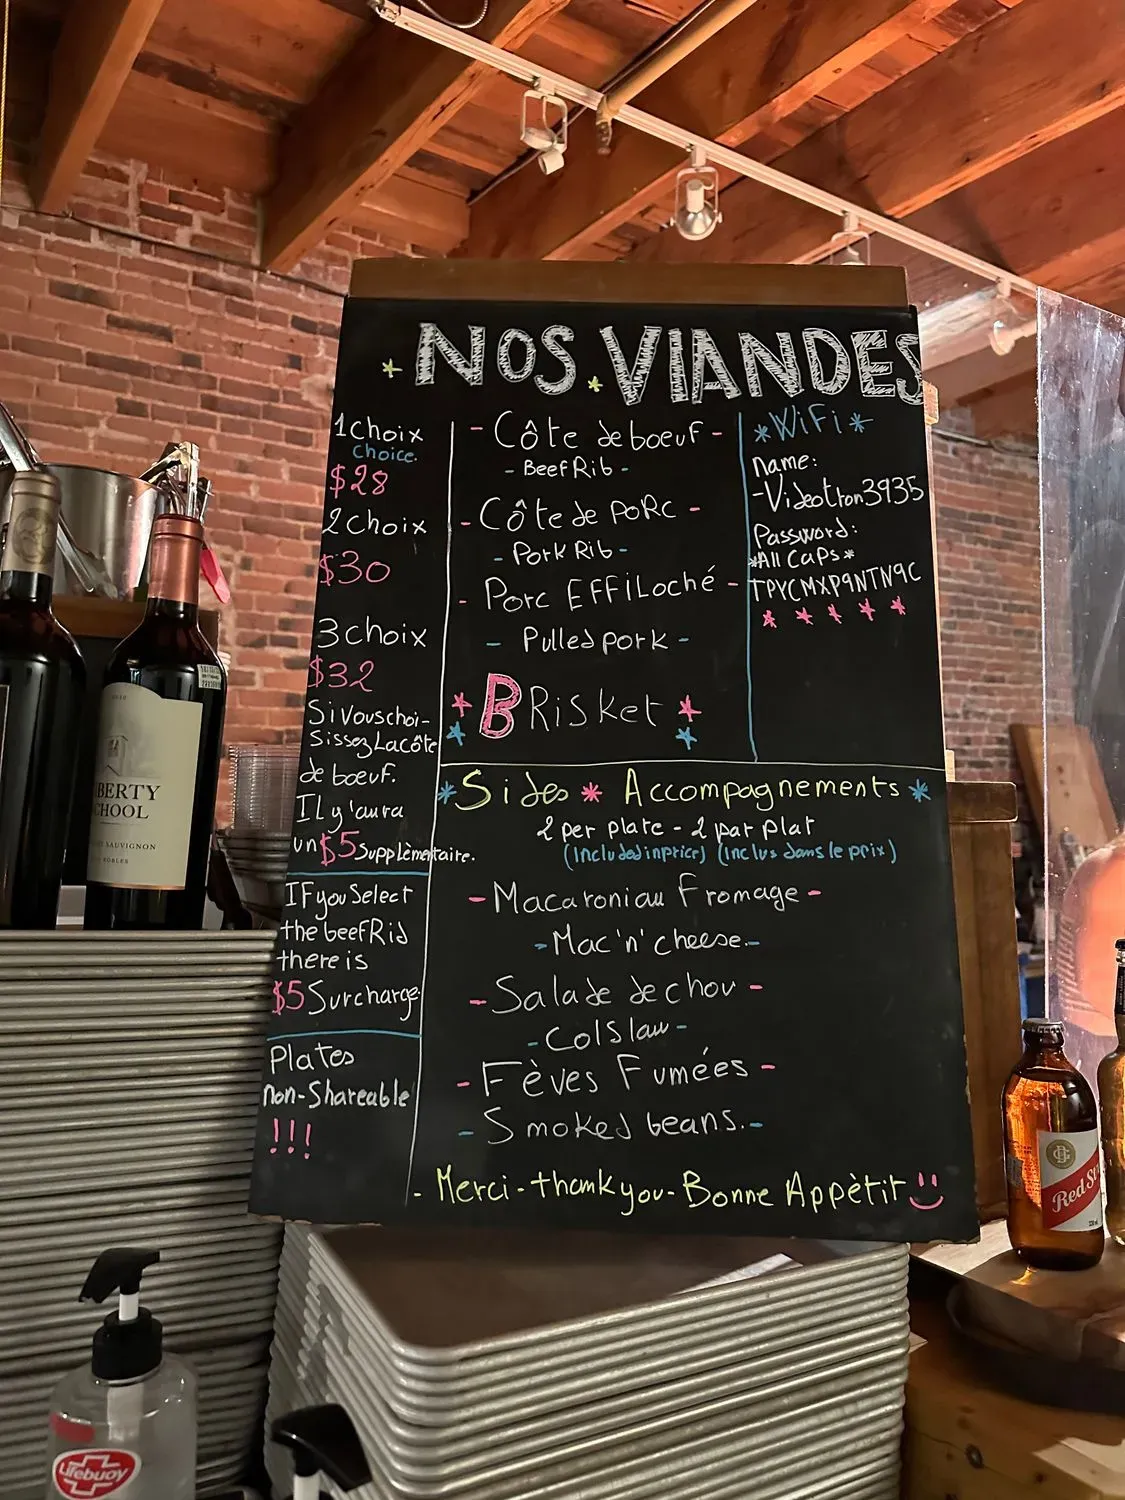 NOS VIANDES
1 choix
choice.
$28
2 choix
$30
3 choix
$32
Si vous choi-
sissez La côte
de boeuf.
Il y'aura
un $5 Supplèmentaire.
IF you Select
the beef Rib
there is
$5 Surcharge
Plates
non-Shareable
!!!
- Côte de boeuf -
- Beef Rib -
- Côte de PoRc -
- Pork Rib -
- Porc EFFiLoché -
- Pulled pork -
BRisket
*WiFi*
name:
-Videotron3935
Password:
*All Caps*
TPYCMXP9NTN9C
*Sides * Accompagnements*
2 per plate - 2 par plat
(Included in price) (inclus dans le prix)
- Macaroni au Fromage -
- Mac'n'cheese. -
- Salade de chou -
- Colslaw -
- Fèves Fumées -
- Smoked beans. -
- Merci - thank you - Bonne Appètit
BERTY
CHOOL
SAUVIGNON
ROBLES
Red St
Lifebuoy